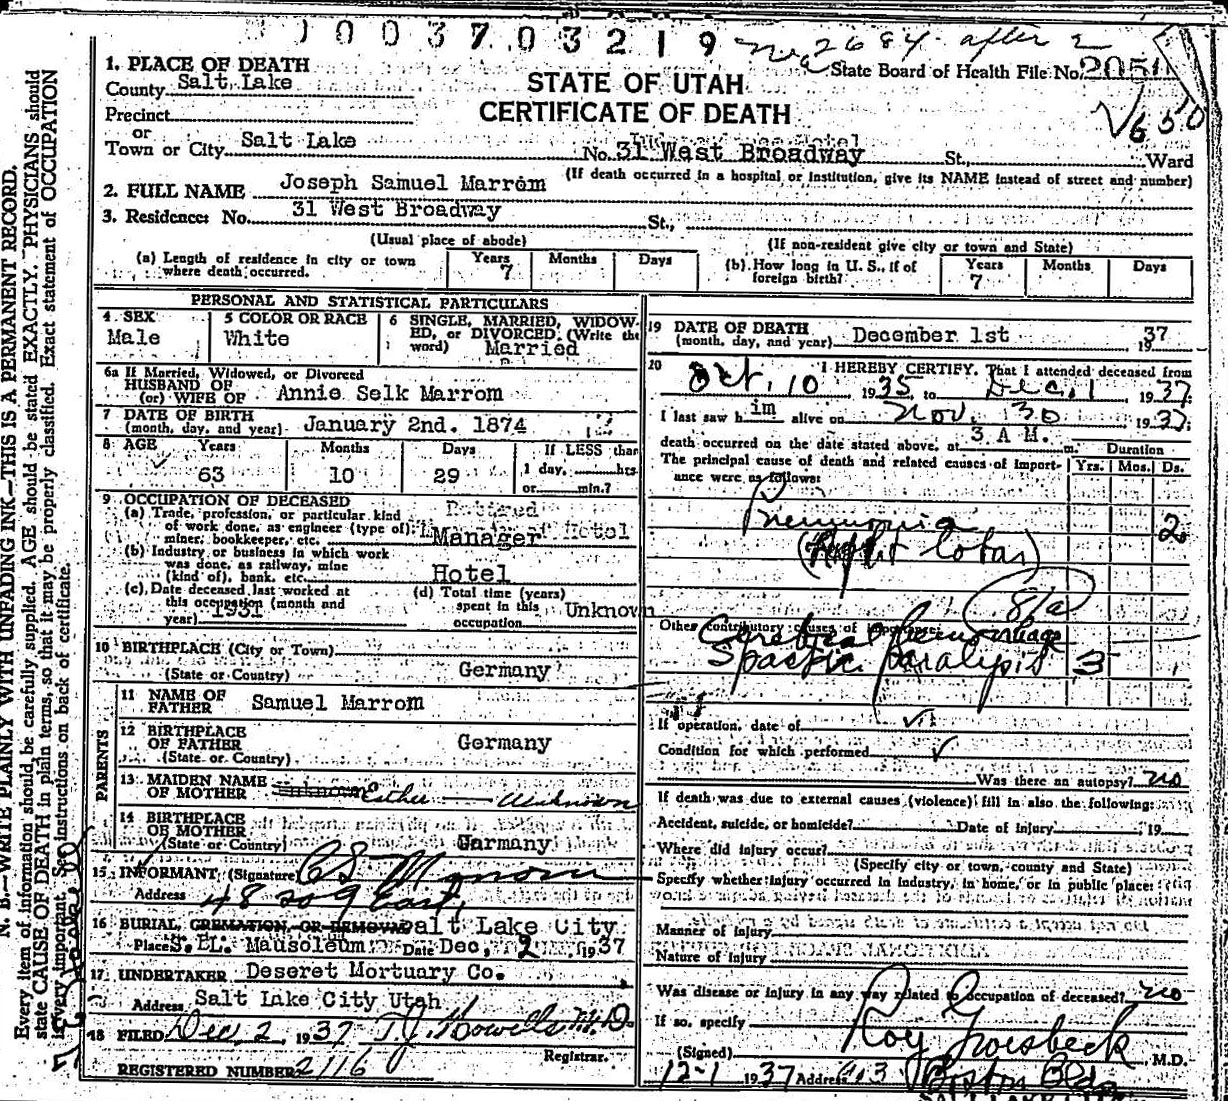 1003703219
2684 after 2
State Board of Health File No. 2050
STATE OF UTAH
CERTIFICATE OF DEATH
1. PLACE OF DEATH
County Salt Lake
Precinct
or
Town or City Salt Lake No. 31 West Broadway St., Ward
(If death occurred in a hospital or institution, give its NAME instead of street and number)
2. FULL NAME Joseph Samuel Marrom
3. Residence: No. 31 West Broadway St.,
(Usual place of abode) (If non-resident give city or town and State)
(a) Length of residence in city or town where death occurred. Years 7 Months Days
(b) How long in U. S., if of foreign birth? Years 7 Months Days
PERSONAL AND STATISTICAL PARTICULARS
4 SEX Male
5 COLOR OR RACE White
6 SINGLE, MARRIED, WIDOWED, or DIVORCED. (Write the word) Married
6a If Married, Widowed, or Divorced
HUSBAND OF
(or) WIFE OF Annie Selk Marrom
7 DATE OF BIRTH
(month, day, and year) January 2nd. 1874
8 AGE Years 63 Months 10 Days 29 If LESS than 1 day, hrs. or min.?
9 OCCUPATION OF DECEASED
(a) Trade, profession, or particular kind of work done, as engineer (type of) miner, bookkeeper, etc. Retired Manager of Hotel
(b) Industry or business in which work was done, as railway, mine (kind of), bank, etc. Hotel
(c) Date deceased last worked at this occupation (month and year) 1931
(d) Total time (years) spent in this occupation Unknown
10 BIRTHPLACE (City or Town)
(State or Country) Germany
PARENTS
11 NAME OF FATHER Samuel Marrom
12 BIRTHPLACE OF FATHER
(State or Country) Germany
13 MAIDEN NAME OF MOTHER Unknown Esther — Unknown
14 BIRTHPLACE OF MOTHER
(State or Country) Garmany
15 INFORMANT (Signature)
Address 48 so 9 East,
16 BURIAL, CREMATION, OR REMOVAL Salt Lake City
Place S. L. Mausoleum Date Dec, 2 1937
17 UNDERTAKER Deseret Mortuary Co.
Address Salt Lake City Utah
18 FILED Dec 2 1937 T. J. Howells M.D.
Registrar.
REGISTERED NUMBER 2116
19 DATE OF DEATH
(month, day, and year) December 1st 1937
20 I HEREBY CERTIFY. That I attended deceased from
Oct. 10 1935, to Dec. 1 1937.
I last saw him alive on Nov. 30 1937;
death occurred on the date stated above, at 3 A M. m. Duration
The principal cause of death and related causes of importance were as follows: Yrs. Mos. Ds.
Pneumonia 2
(Right lobar)
81a
Other contributory causes of importance:
Cerebral Hemorrhage
Spastic paralysis 3
If operation, date of
Condition for which performed
Was there an autopsy? no
If death was due to external causes (violence) fill in also the following:
Accident, suicide, or homicide? Date of injury 19
Where did injury occur?
(Specify city or town, county and State)
Specify whether injury occurred in industry, in home, or in public place:
Manner of injury
Nature of injury
Was disease or injury in any way related to occupation of deceased? no
If so, specify
(Signed) Roy Groesbeck M.D.
12-1 1937 Address Boston Bldg
N. B.—WRITE PLAINLY WITH UNFADING INK—THIS IS A PERMANENT RECORD.
Every item of information should be carefully supplied. AGE should be stated EXACTLY. PHYSICIANS should
state CAUSE OF DEATH in plain terms, so that it may be properly classified. Exact statement of OCCUPATION
is very important. See instructions on back of certificate.